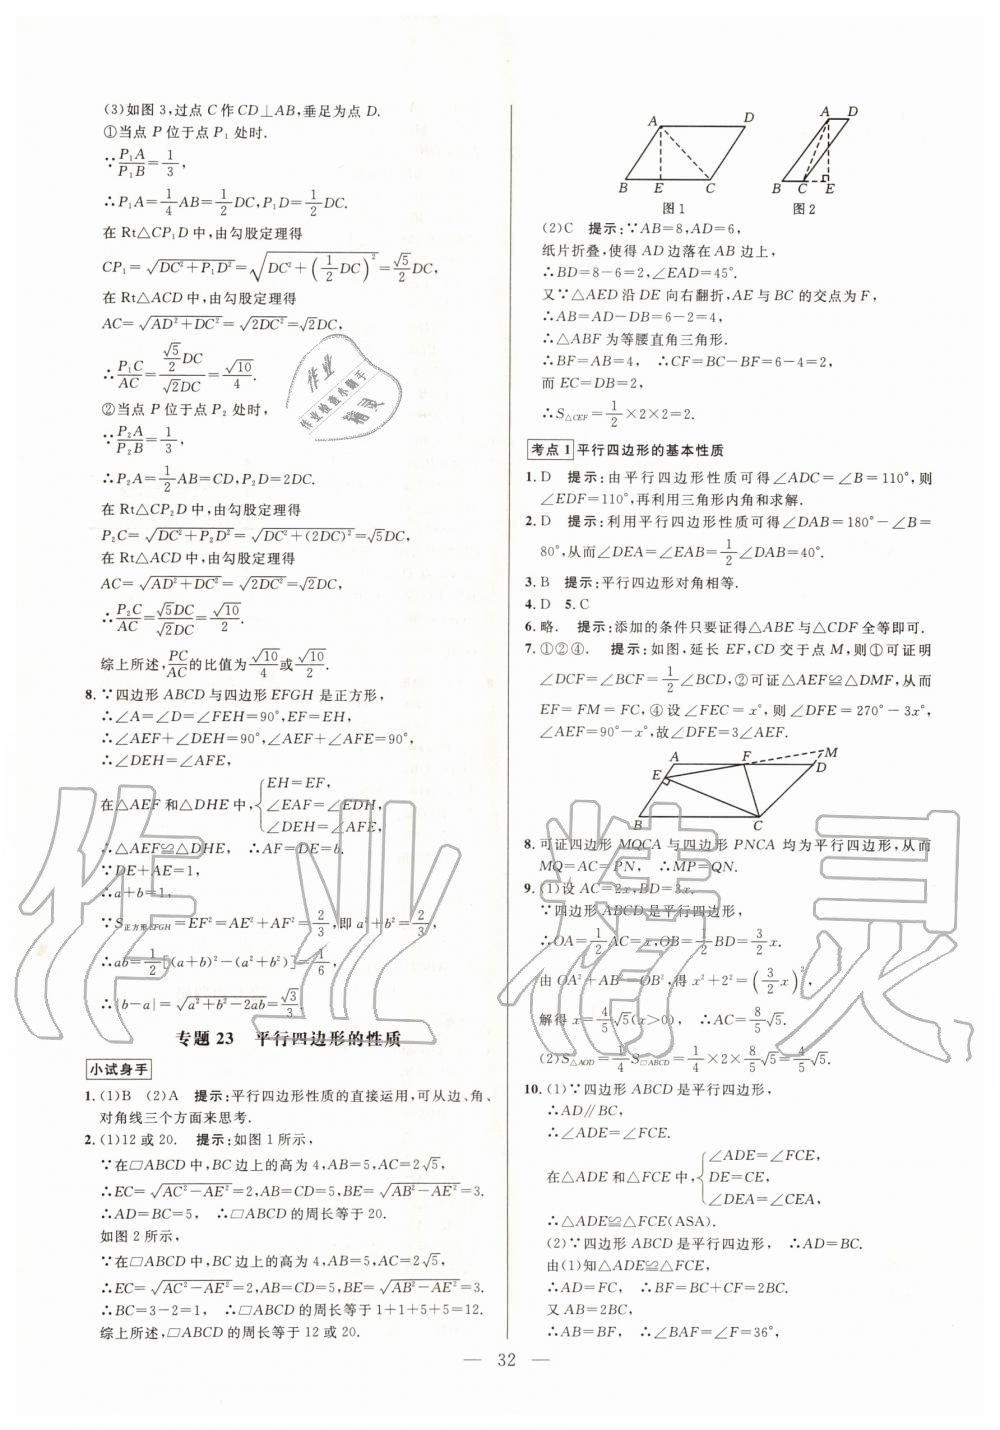 (3)如图 3,过点 C 作 CD⊥AB,垂足为点 D.
①当点 P 位于点 P₁ 处时.
∵P₁A/P₁B=1/3,
∴P₁A=1/4AB=1/2DC,P₁D=1/2DC.
在 Rt△CP₁D 中,由勾股定理得
CP₁=√(DC²+P₁D²)=√(DC²+(1/2DC)²)=√5/2DC
在 Rt△ACD 中,由勾股定理得
AC=√(AD²+DC²)=√(2DC²)=√2DC,
∴P₁C/AC=(√5/2DC)/(√2DC)=√10/4.
②当点 P 位于点 P₂ 处时,
∵P₂A/P₂B=1/3,
∴P₂A=1/2AB=CD,P₂D=2DC.
在 Rt△CP₂D 中,由勾股定理得
P₂C=√(DC²+P₂D²)=√(DC²+(2DC)²)=√5DC,
在 Rt△ACD 中,由勾股定理得
AC=√(AD²+DC²)=√(2DC²)=√2DC,
∴P₂C/AC=√5DC/√2DC=√10/2.
综上所述,PC/AC的比值为√10/4或√10/2.
8. ∵四边形 ABCD 与四边形 EFGH 是正方形,
∴∠A=∠D=∠FEH=90°,EF=EH,
∴∠AEF+∠DEH=90°,∠AEF+∠AFE=90°.
∴∠DEH=∠AFE,
在△AEF 和△DHE 中,{EH=EF,
∠EAF=∠EDH,
∠DEH=∠AFE,
∴△AEF≌△DHE, ∴AF=DE=b.
∵DE+AE=1,
∴a+b=1,
∵S正方形EFGH=EF²=AE²+AF²=2/3,即 a²+b²=2/3,
∴ab=1/2[(a+b)²-(a²+b²)]=1/6,
∴|b-a|=√(a²+b²-2ab)=√3/3.
专题 23 平行四边形的性质
小试身手
1. (1)B (2)A 提示:平行四边形性质的直接运用,可从边、角、
对角线三个方面来思考.
2. (1)12 或 20. 提示:如图 1 所示,
∵在▱ABCD 中,BC 边上的高为 4,AB=5,AC=2√5,
∴EC=√(AC²-AE²)=2,AB=CD=5,BE=√(AB²-AE²)=3.
∴AD=BC=5, ∴▱ABCD 的周长等于 20.
如图 2 所示,
∵在▱ABCD 中,BC 边上的高为 4,AB=5,AC=2√5,
∴EC=√(AC²-AE²)=2,AB=CD=5,BE=√(AB²-AE²)=3.
∴BC=3-2=1, ∴▱ABCD 的周长等于 1+1+5+5=12.
综上所述,▱ABCD 的周长等于 12 或 20.
A D
B E C
图 1
A D
B C E
图 2
(2)C 提示:∵AB=8,AD=6,
纸片折叠,使得 AD 边落在 AB 边上,
∴BD=8-6=2,∠EAD=45°.
又∵△AED 沿 DE 向右翻折,AE 与 BC 的交点为 F,
∴AB=AD-DB=6-2=4,
∴△ABF 为等腰直角三角形.
∴BF=AB=4, ∴CF=BC-BF=6-4=2,
而 EC=DB=2,
∴S△CEF=1/2×2×2=2.
考点 1 平行四边形的基本性质
1. D 提示:由平行四边形性质可得∠ADC=∠B=110°,则
∠EDF=110°,再利用三角形内角和求解.
2. D 提示:利用平行四边形性质可得∠DAB=180°-∠B=
80°,从而∠DEA=∠EAB=1/2∠DAB=40°.
3. B 提示:平行四边形对角相等.
4. D 5. C
6. 略. 提示:添加的条件只要证得△ABE与△CDF 全等即可.
7. ①②④. 提示:如图,延长 EF,CD 交于点 M,则①可证明
∠DCF=∠BCF=1/2∠BCD,②可证△AEF≌△DMF,从而
EF=FM=FC,④设∠FEC=x°,则∠DFE=270°-3x°,
∠AEF=90°-x°,故∠DFE=3∠AEF.
A F M
E D
B C
8. 可证四边形 MQCA 与四边形 PNCA 均为平行四边形,从而
MQ=AC=PN, ∴MP=QN.
9. (1)设 AC=2x,BD=3x,
∵四边形 ABCD 是平行四边形,
∴OA=1/2AC=x,OB=1/2BD=3/2x.
由 OA²+AB²=OB²,得 x²+2²=(3/2x)²,
解得 x=4/5√5(x>0),∴AC=8/5√5.
(2)S△AOD=1/4S▱ABCD=1/4×2×8/5√5=4/5√5.
10. (1)∵四边形 ABCD 是平行四边形,
∴AD∥BC,
∴∠ADE=∠FCE.
在△ADE 和△FCE 中,{∠ADE=∠FCE,
DE=CE,
∠DEA=∠CEA,
∴△ADE≌△FCE(ASA).
(2)∵四边形 ABCD 是平行四边形, ∴AD=BC.
由(1)知△ADE≌△FCE,
∴AD=FC, ∴BF=BC+CF=2BC.
又 AB=2BC,
∴AB=BF, ∴∠BAF=∠F=36°,
— 32 —
作业精灵
作业
作业检查小助手
精灵